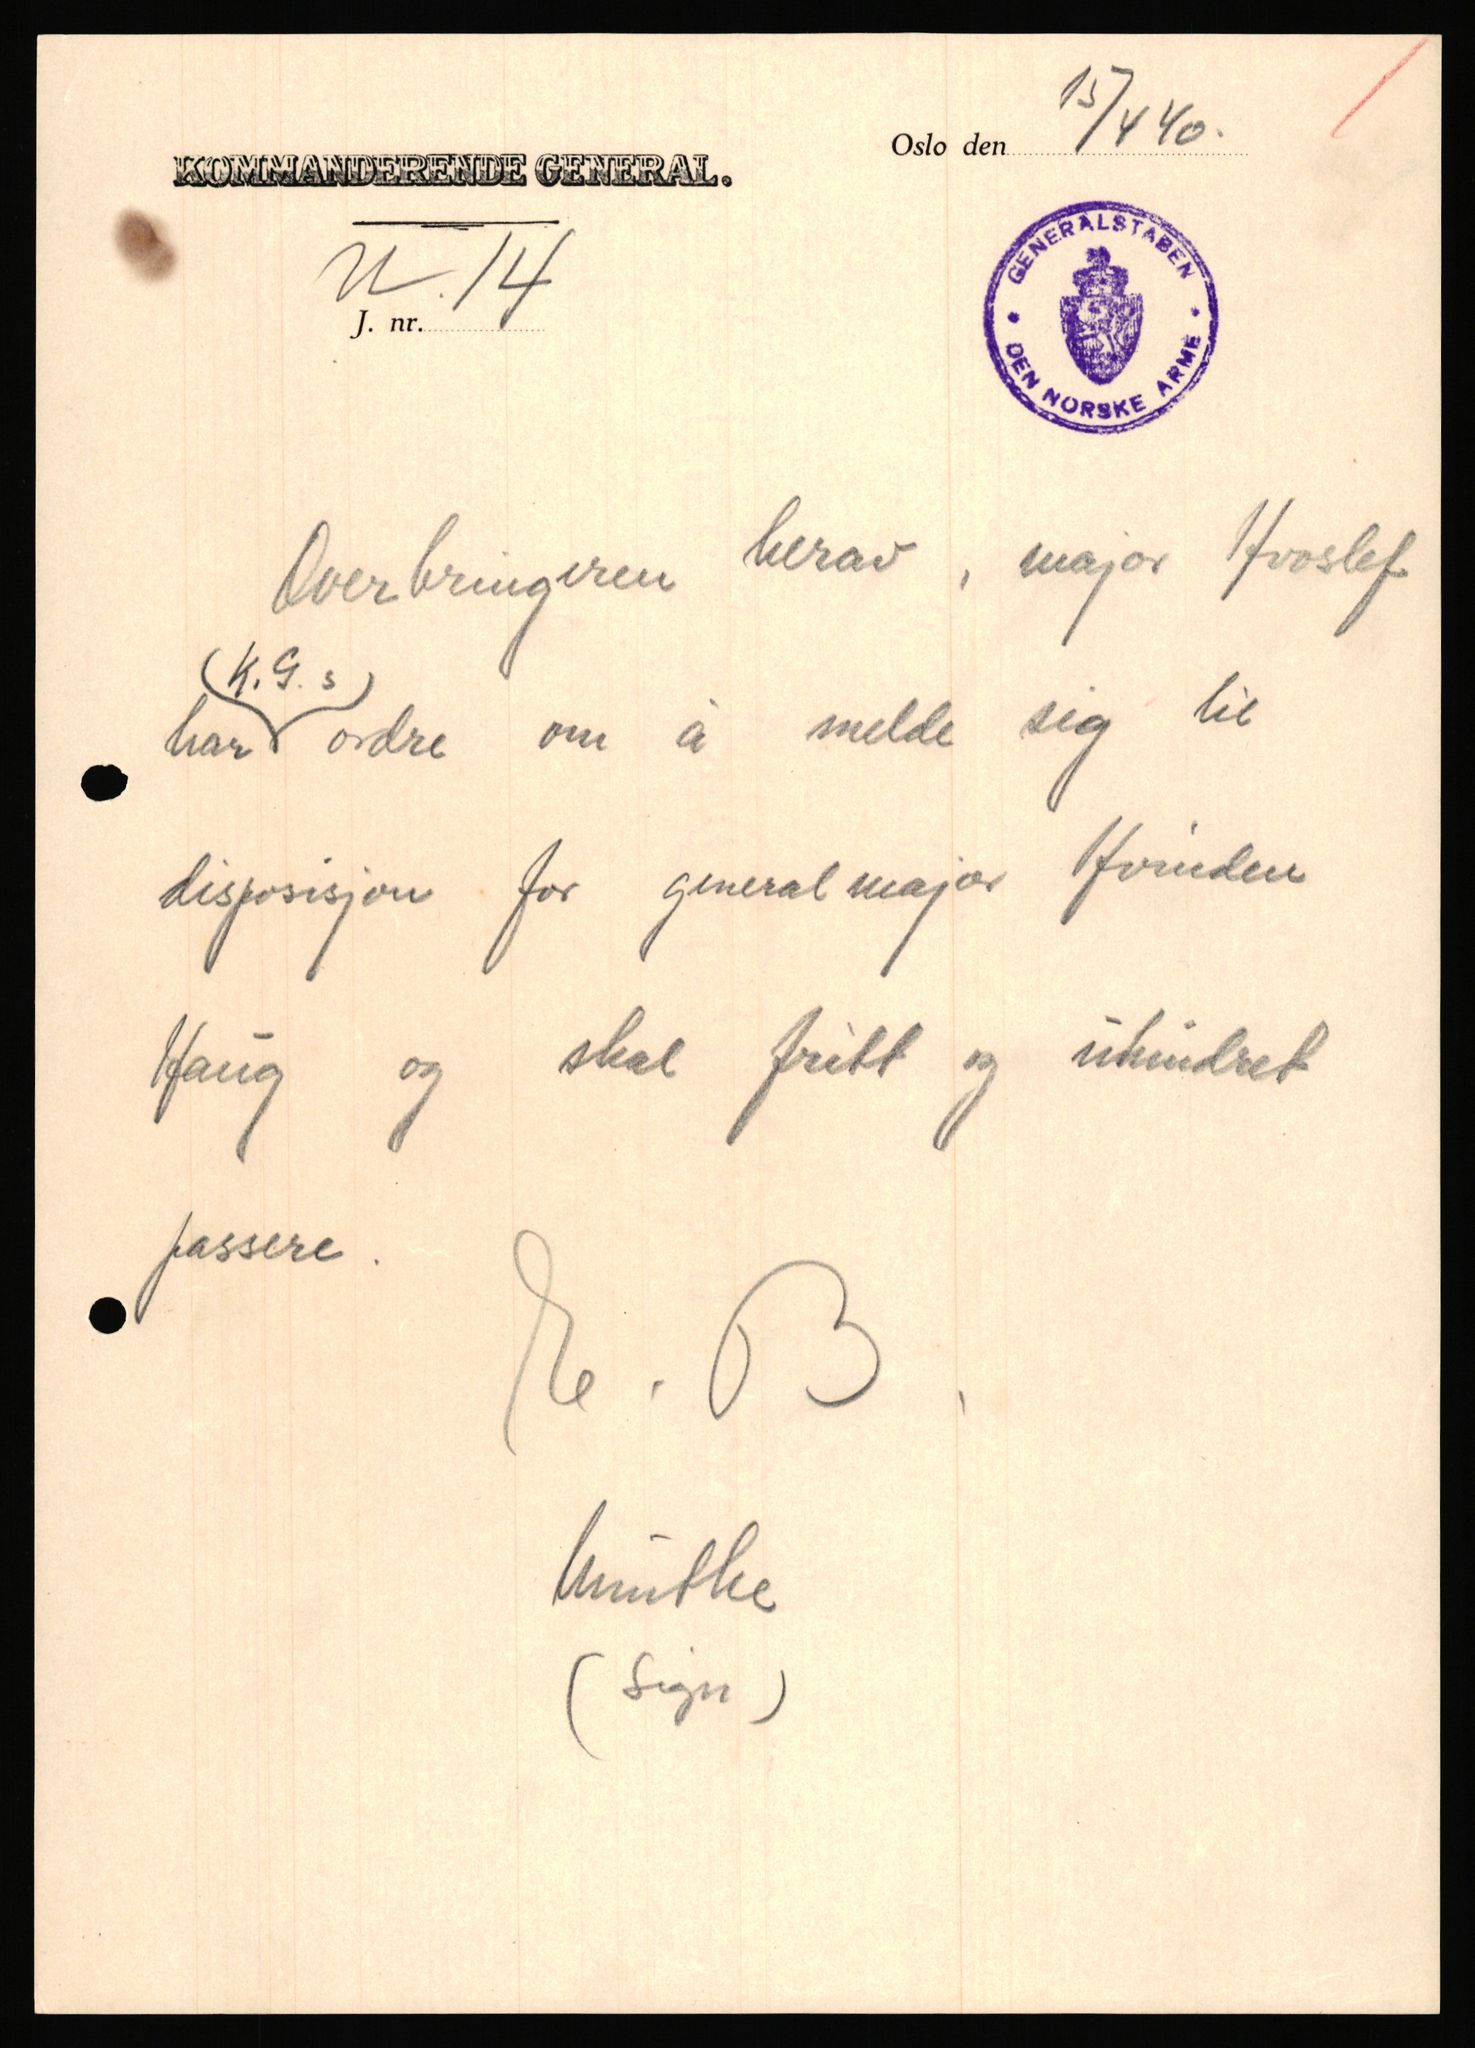 15/4 40.
Oslo den
KOMMANDERENDE GENERAL.
J. nr. 14
GENERALSTABEN
* DEN NORSKE ARMÉ *
Overbringeren herav, major Hvoslef
(K.G.s)
har ordre om å melde sig til
disposisjon for generalmajor Hvinden
Haug og skal fritt og uhindret
passere.
E. B.
Munthe
(Sign)